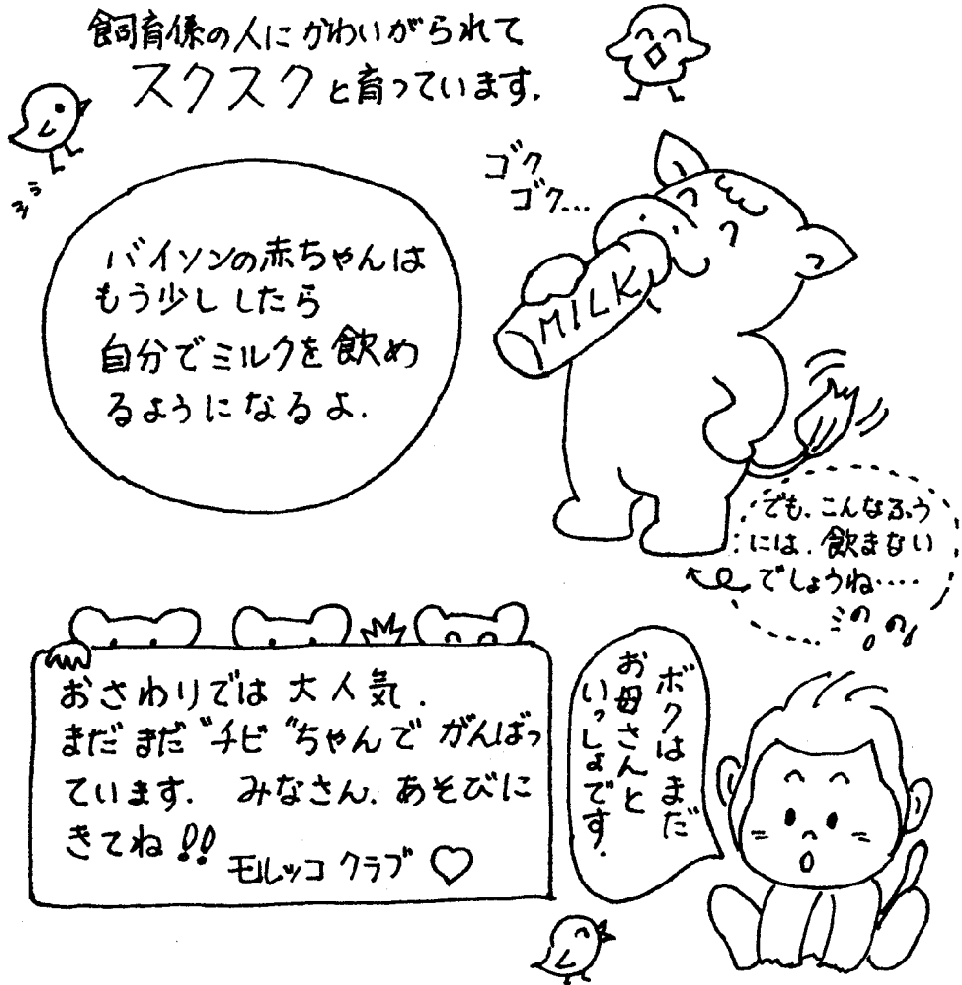 飼育係の人にかわいがられて
スクスクと育っています.
ゴク
ゴク...
バイソンの赤ちゃんは
もう少ししたら
自分でミルクを飲め
るようになるよ.
MILK
でも、こんなふう
には、飲まない
でしょうね‥‥
おさわりでは大人気.
まだまだ"チビ"ちゃんでがんばっ
ています. みなさん、あそびに
きてね!!
モルッコクラブ♡
ボクはまだ
お母さんと
いっしょです.